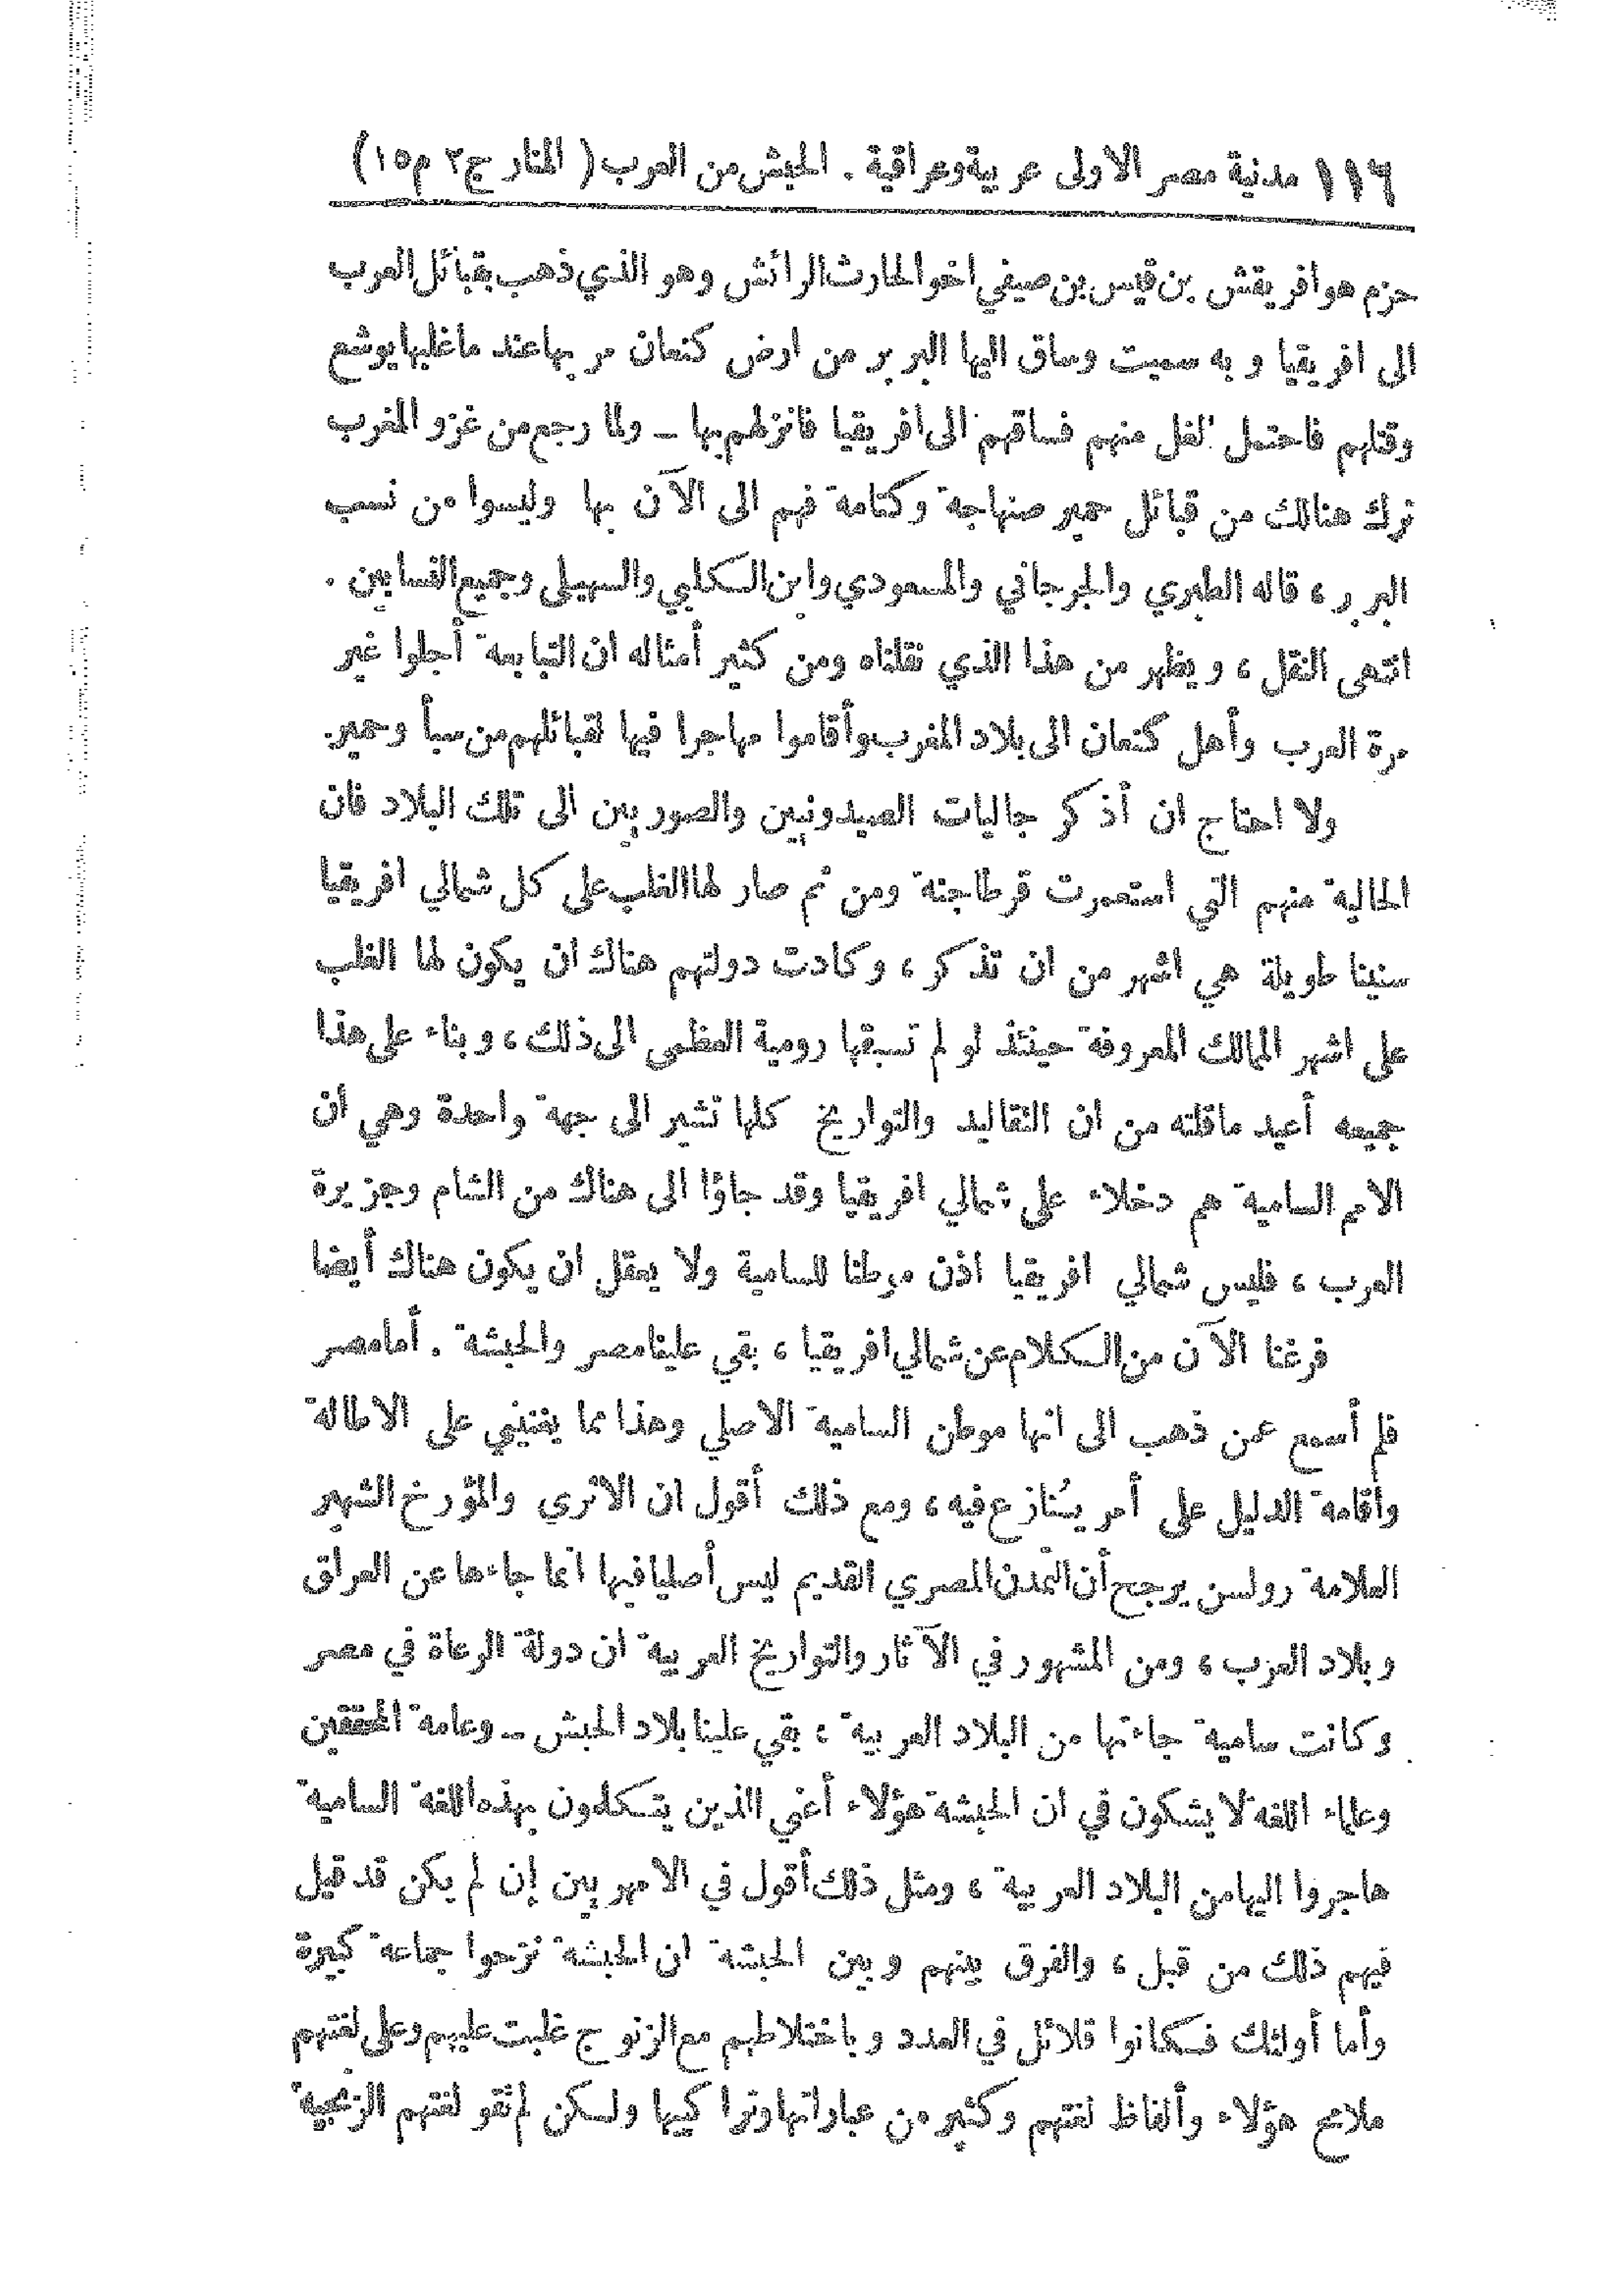 ١١٦ مدنية مصر الاولى عربية وعراقية . الحبش من العرب ( المنار ج٢ م١٥ )
حزم هو افريقش بن قيس بن صيفي اخو الحارث الرائش وهو الذي ذهب بقبائل العرب
الى افريقيا و به سميت وساق اليها البربر من ارض كنعان مر بها عند ما غلبها يوشع
وقتلهم فاحتمل الفل منهم فساقهم الى افريقيا فانزلهم بها ــ ولما رجع من غزو المغرب
ترك هنالك من قبائل حمير صنهاجة وكتامة فهم الى الآن بها وليسوا من نسب
البربر ، قاله الطبري والجرجاني والمسعودي وابن الكلبي والسهيلي وجميع النسابين .
انتهى النقل ، و يظهر من هذا الذي نقلناه ومن كثير أمثاله ان التبابعة أجلوا غير
مرة العرب وأهل كنعان الى بلاد المغرب وأقاموا مهاجرا فيها لقبائلهم من سبأ وحمير.
ولا احتاج ان أذكر جاليات الصيدونيين والصوريين الى تلك البلاد فان
الجالية منهم التي استعمرت قرطاجنة ومن ثم صار لها الغلب على كل شمالي افريقيا
سنينا طويلة هي اشهر من ان تذكر ، وكادت دولتهم هناك ان يكون لها الغلب
على اشهر الممالك المعروفة حينئذ لو لم تسبقها رومية العظمى الى ذلك ، و بناء على هذا
جميعه أعيد ماقلته من ان التقاليد والتواريخ كلها تشير الى جهة واحدة وهي ان
الامم السامية هم دخلاء على شمالي افريقيا وقد جاؤا الى هناك من الشام وجزيرة
العرب ، فليس شمالي افريقيا اذن موطنا للسامية ولا يعقل ان يكون هناك أيضا
فرغنا الآن من الكلام عن شمالي افريقيا ، بقي علينا مصر والحبشة . أما مصر
فلم أسمع عمن ذهب الى انها موطن السامية الاصلي وهذا مما يغنيني على الاطالة
وأقامة الدليل على أمر يُنازع فيه ، ومع ذلك أقول ان الاثري والمؤرخ الشهير
العلامة رولسن يرجح أن التمدن المصري القديم ليس أصليا فيها انما جاءها عن العراق
و بلاد العرب ، ومن المشهور في الآثار والتواريخ العربية ان دولة الرعاة في مصر
وكانت سامية جاءتها من البلاد العربية ، بقي علينا بلاد الحبش ــ وعامة المحققين
وعلماء اللغة لا يشكون في ان الحبشة هؤلاء أعني الذين يتكلمون بهذه اللغة السامية
هاجروا اليها من البلاد العربية ، ومثل ذلك أقول في الامهريين إن لم يكن قد قيل
فيهم ذلك من قبل ، والفرق بينهم و بين الحبشة ان الحبشة نزحوا جماعة كبيرة
وأما أولئك فكانوا قلائل في العدد و باختلاطهم مع الزنوج غلبت عليهم وعلى لغتهم
ملامح هؤلاء وألفاظ لغتهم وكثير من عباراتها وتراكيبها ولكن لم تقو لغتهم الزنجية